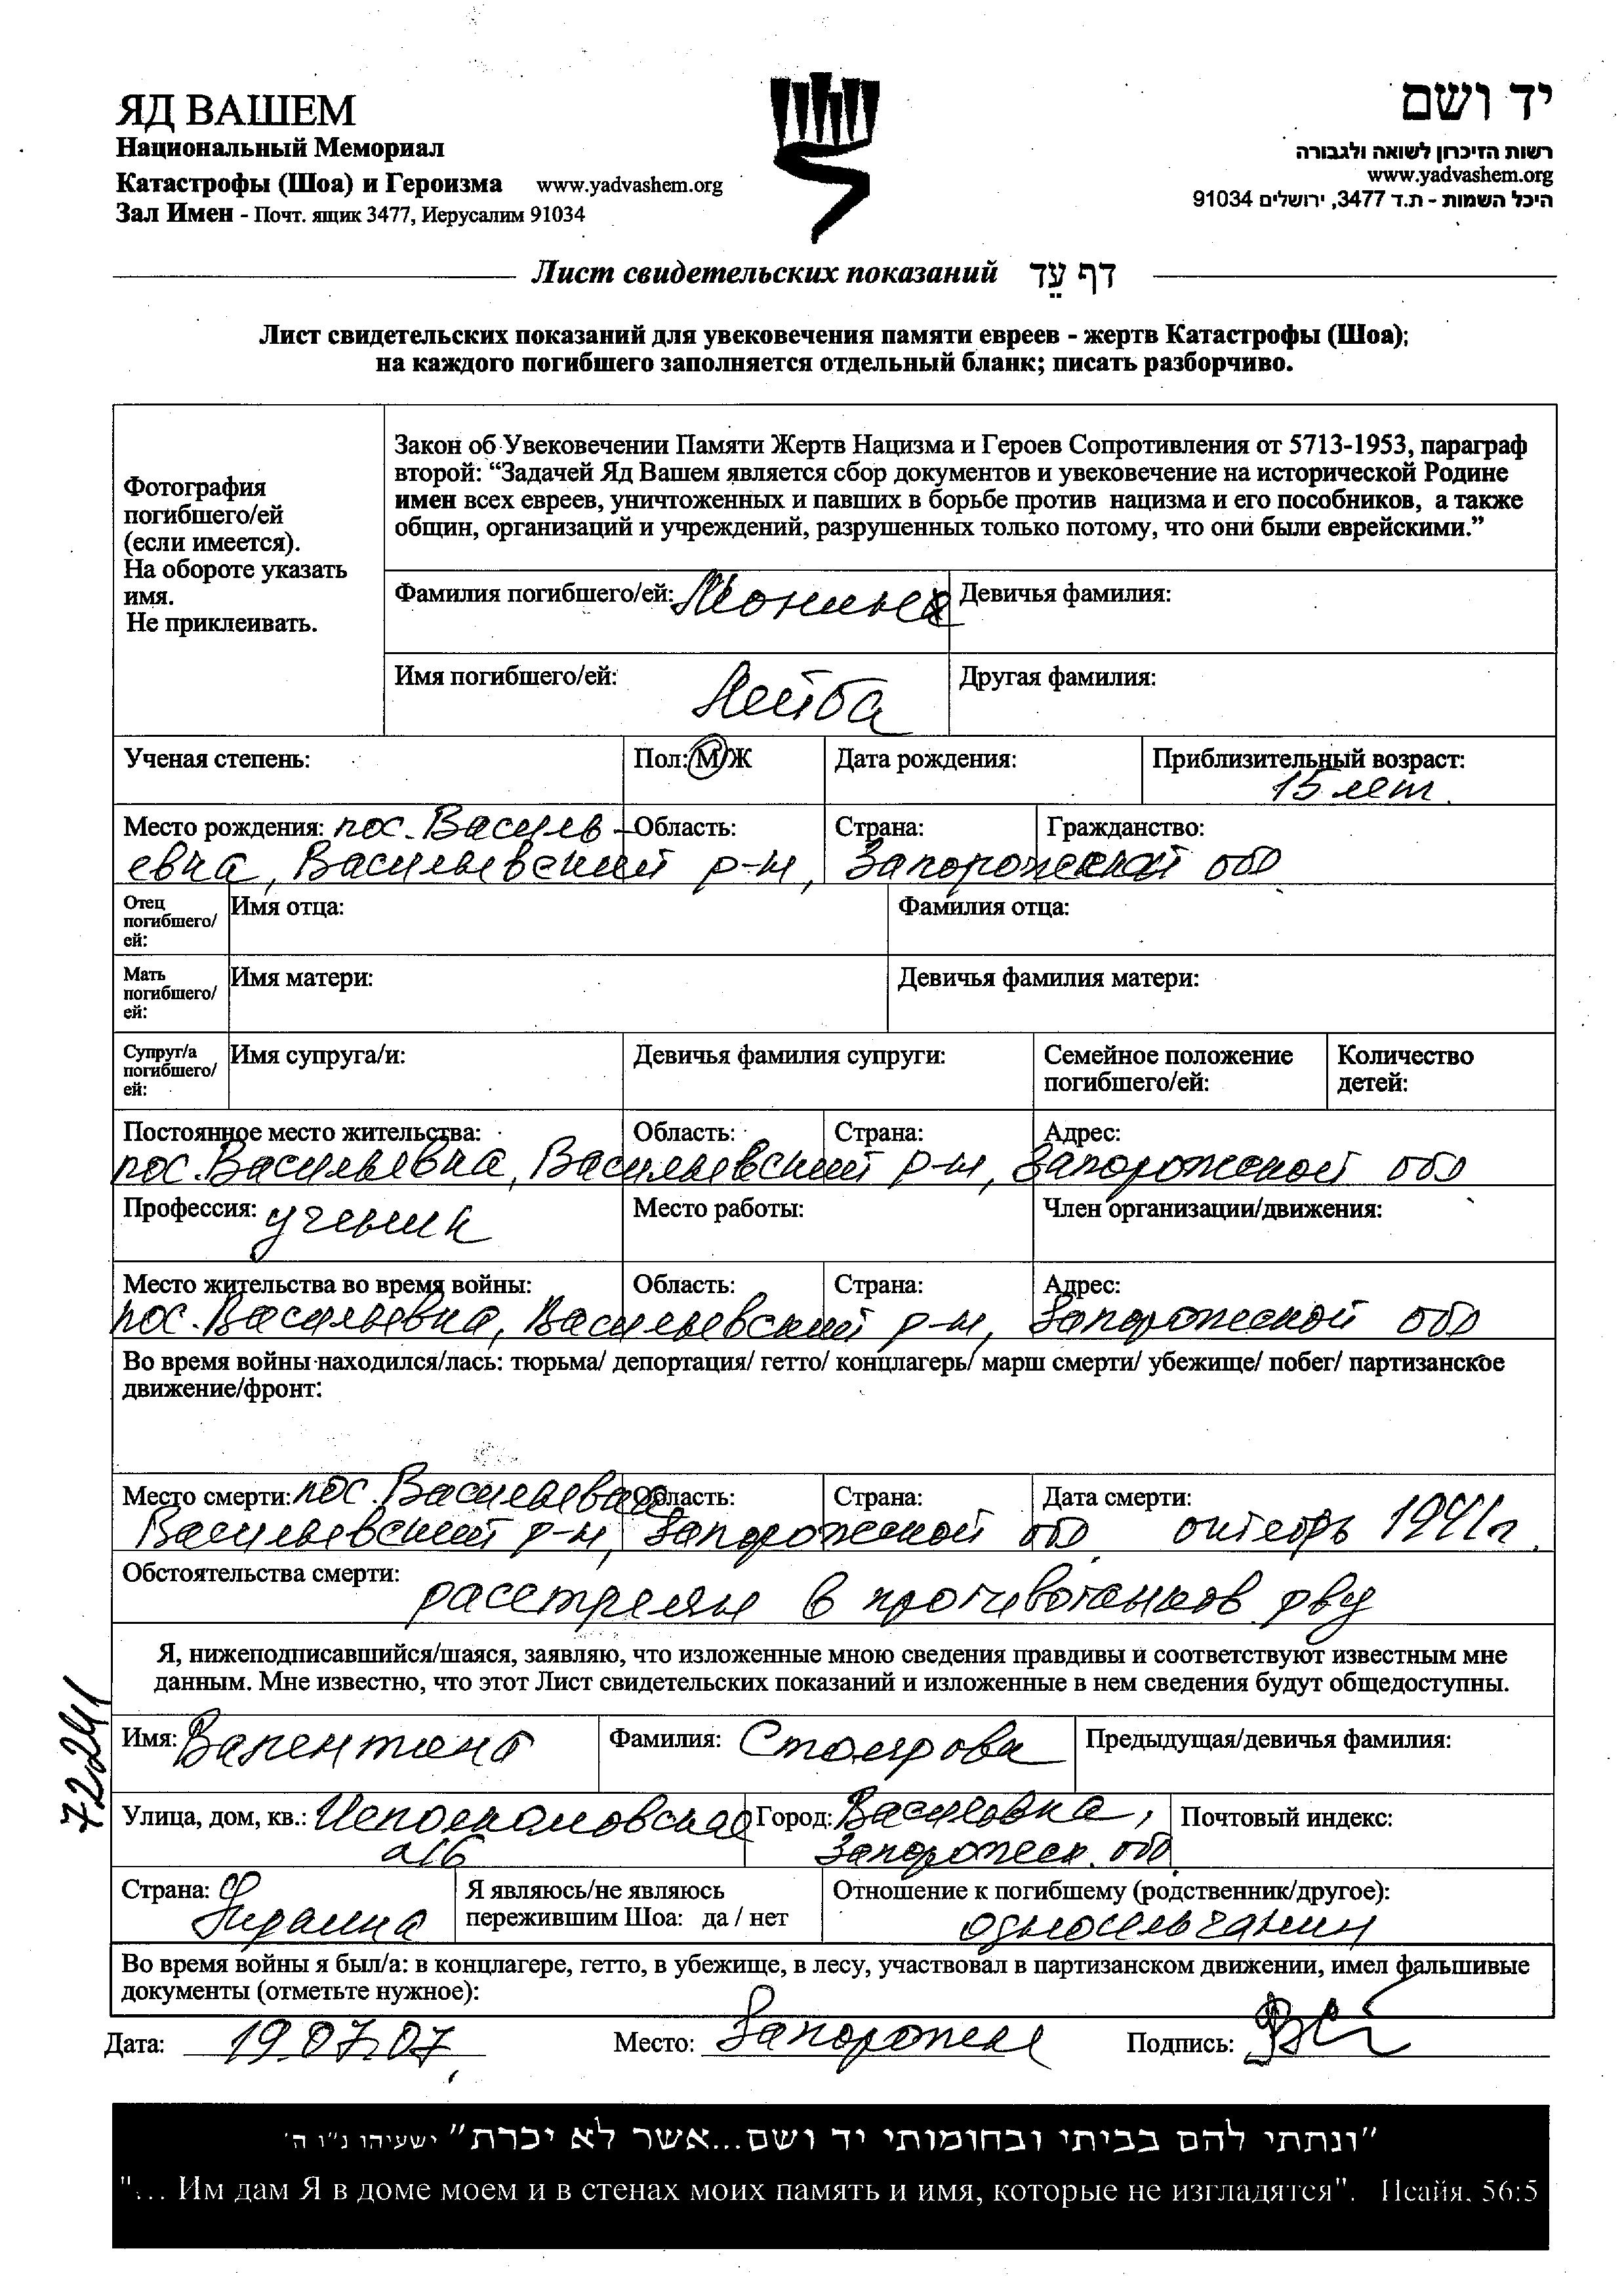 ЯД ВАШЕМ
Национальный Мемориал
Катастрофы (Шоа) и Героизма www.yadvashem.org
Зал Имен - Почт. ящик 3477, Иерусалим 91034
יד ושם
רשות הזיכרון לשואה ולגבורה
www.yadvashem.org
היכל השמות - ת.ד 3477, ירושלים 91034
Лист свидетельских показаний דף עֵד
Лист свидетельских показаний для увековечения памяти евреев - жертв Катастрофы (Шоа);
на каждого погибшего заполняется отдельный бланк; писать разборчиво.
Фотография
погибшего/ей
(если имеется).
На обороте указать
имя.
Не приклеивать.
Закон об Увековечении Памяти Жертв Нацизма и Героев Сопротивления от 5713-1953, параграф
второй: “Задачей Яд Вашем является сбор документов и увековечение на исторической Родине
имен всех евреев, уничтоженных и павших в борьбе против нацизма и его пособников, а также
общин, организаций и учреждений, разрушенных только потому, что они были еврейскими.”
Фамилия погибшего/ей: Девичья фамилия:
Имя погибшего/ей: Лейба Другая фамилия:
Ученая степень: Пол: М/Ж Дата рождения: Приблизительный возраст:
15 лет.
Место рождения: пос. Василь- Область: Страна: Гражданство:
евка, Васильевский р-н, Запорожской обл
Отец
погибшего/
ей:
Имя отца: Фамилия отца:
Мать
погибшего/
ей:
Имя матери: Девичья фамилия матери:
Супруг/а
погибшего/
ей:
Имя супруга/и: Девичья фамилия супруги: Семейное положение
погибшего/ей:
Количество
детей:
Постоянное место жительства: Область: Страна: Адрес:
пос. Васильевка, Васильевский р-н, Запорожской обл
Профессия: ученик Место работы: Член организации/движения:
Место жительства во время войны: Область: Страна: Адрес:
пос. Васильевка, Васильевский р-н, Запорожской обл
Во время войны находился/лась: тюрьма/ депортация/ гетто/ концлагерь/ марш смерти/ убежище/ побег/ партизанское
движение/фронт:
Место смерти: пос. Васильевка Область: Страна: Дата смерти:
Васильевский р-н, Запорожской обл. октябрь 1941г.
Обстоятельства смерти: расстрелян в противотанков. рву
Я, нижеподписавшийся/шаяся, заявляю, что изложенные мною сведения правдивы и соответствуют известным мне
данным. Мне известно, что этот Лист свидетельских показаний и изложенные в нем сведения будут общедоступны.
72241
Имя: Валентина Фамилия: Предыдущая/девичья фамилия:
Улица, дом, кв.: Город: Васильевка, Почтовый индекс:
Запорожск. обл
Страна: Украина Я являюсь/не являюсь
пережившим Шоа: да / нет
Отношение к погибшему (родственник/другое):
односельчанин
Во время войны я был/а: в концлагере, гетто, в убежище, в лесу, участвовал в партизанском движении, имел фальшивые
документы (отметьте нужное):
Дата: 19.07.07 Место: Запорожье Подпись:
"ונתתי להם בביתי ובחומותי יד ושם...אשר לא יכרת" ישעיהו נ"ו ה'
"... Им дам Я в доме моем и в стенах моих память и имя, которые не изгладятся". Исайя, 56:5